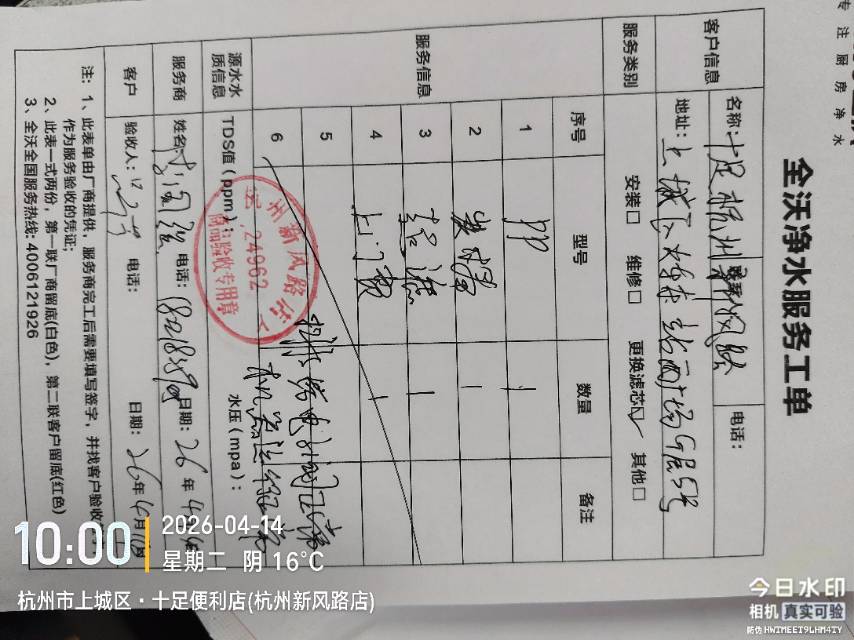 专注厨房净水
全沃净水服务工单
客户信息
名称：十足杭州新风路
联系人
电话：
地址：上城区火车东站西广场G层5号
服务类别
安装□ 维修□ 更换滤芯☑ 其他□
服务信息
序号 型号 数量 备注
1 PP 1
2 炭棒 1
3 超滤 1
4 上门费 1
5
6
源水水质信息
TDS值（ppm）：
水压（mpa）：
州新风路店
24962
商品验收专用章
服务商
姓名：
电话：
日期：26年4.14
客户
验收人：
电话：
日期：26年4月14日
注：1、此表单由厂商提供，服务商完工后需要填写签字，并找客户验收
作为服务验收的凭证；
2、此表一式两份，第一联厂商留底(白色)，第二联客户留底(红色)
3、全沃全国服务热线：4006121926
10:00
2026-04-14
星期二 阴 16°C
杭州市上城区·十足便利店(杭州新风路店)
今日水印
相机 真实可验
防伪 HWIMEET9LHM4TY